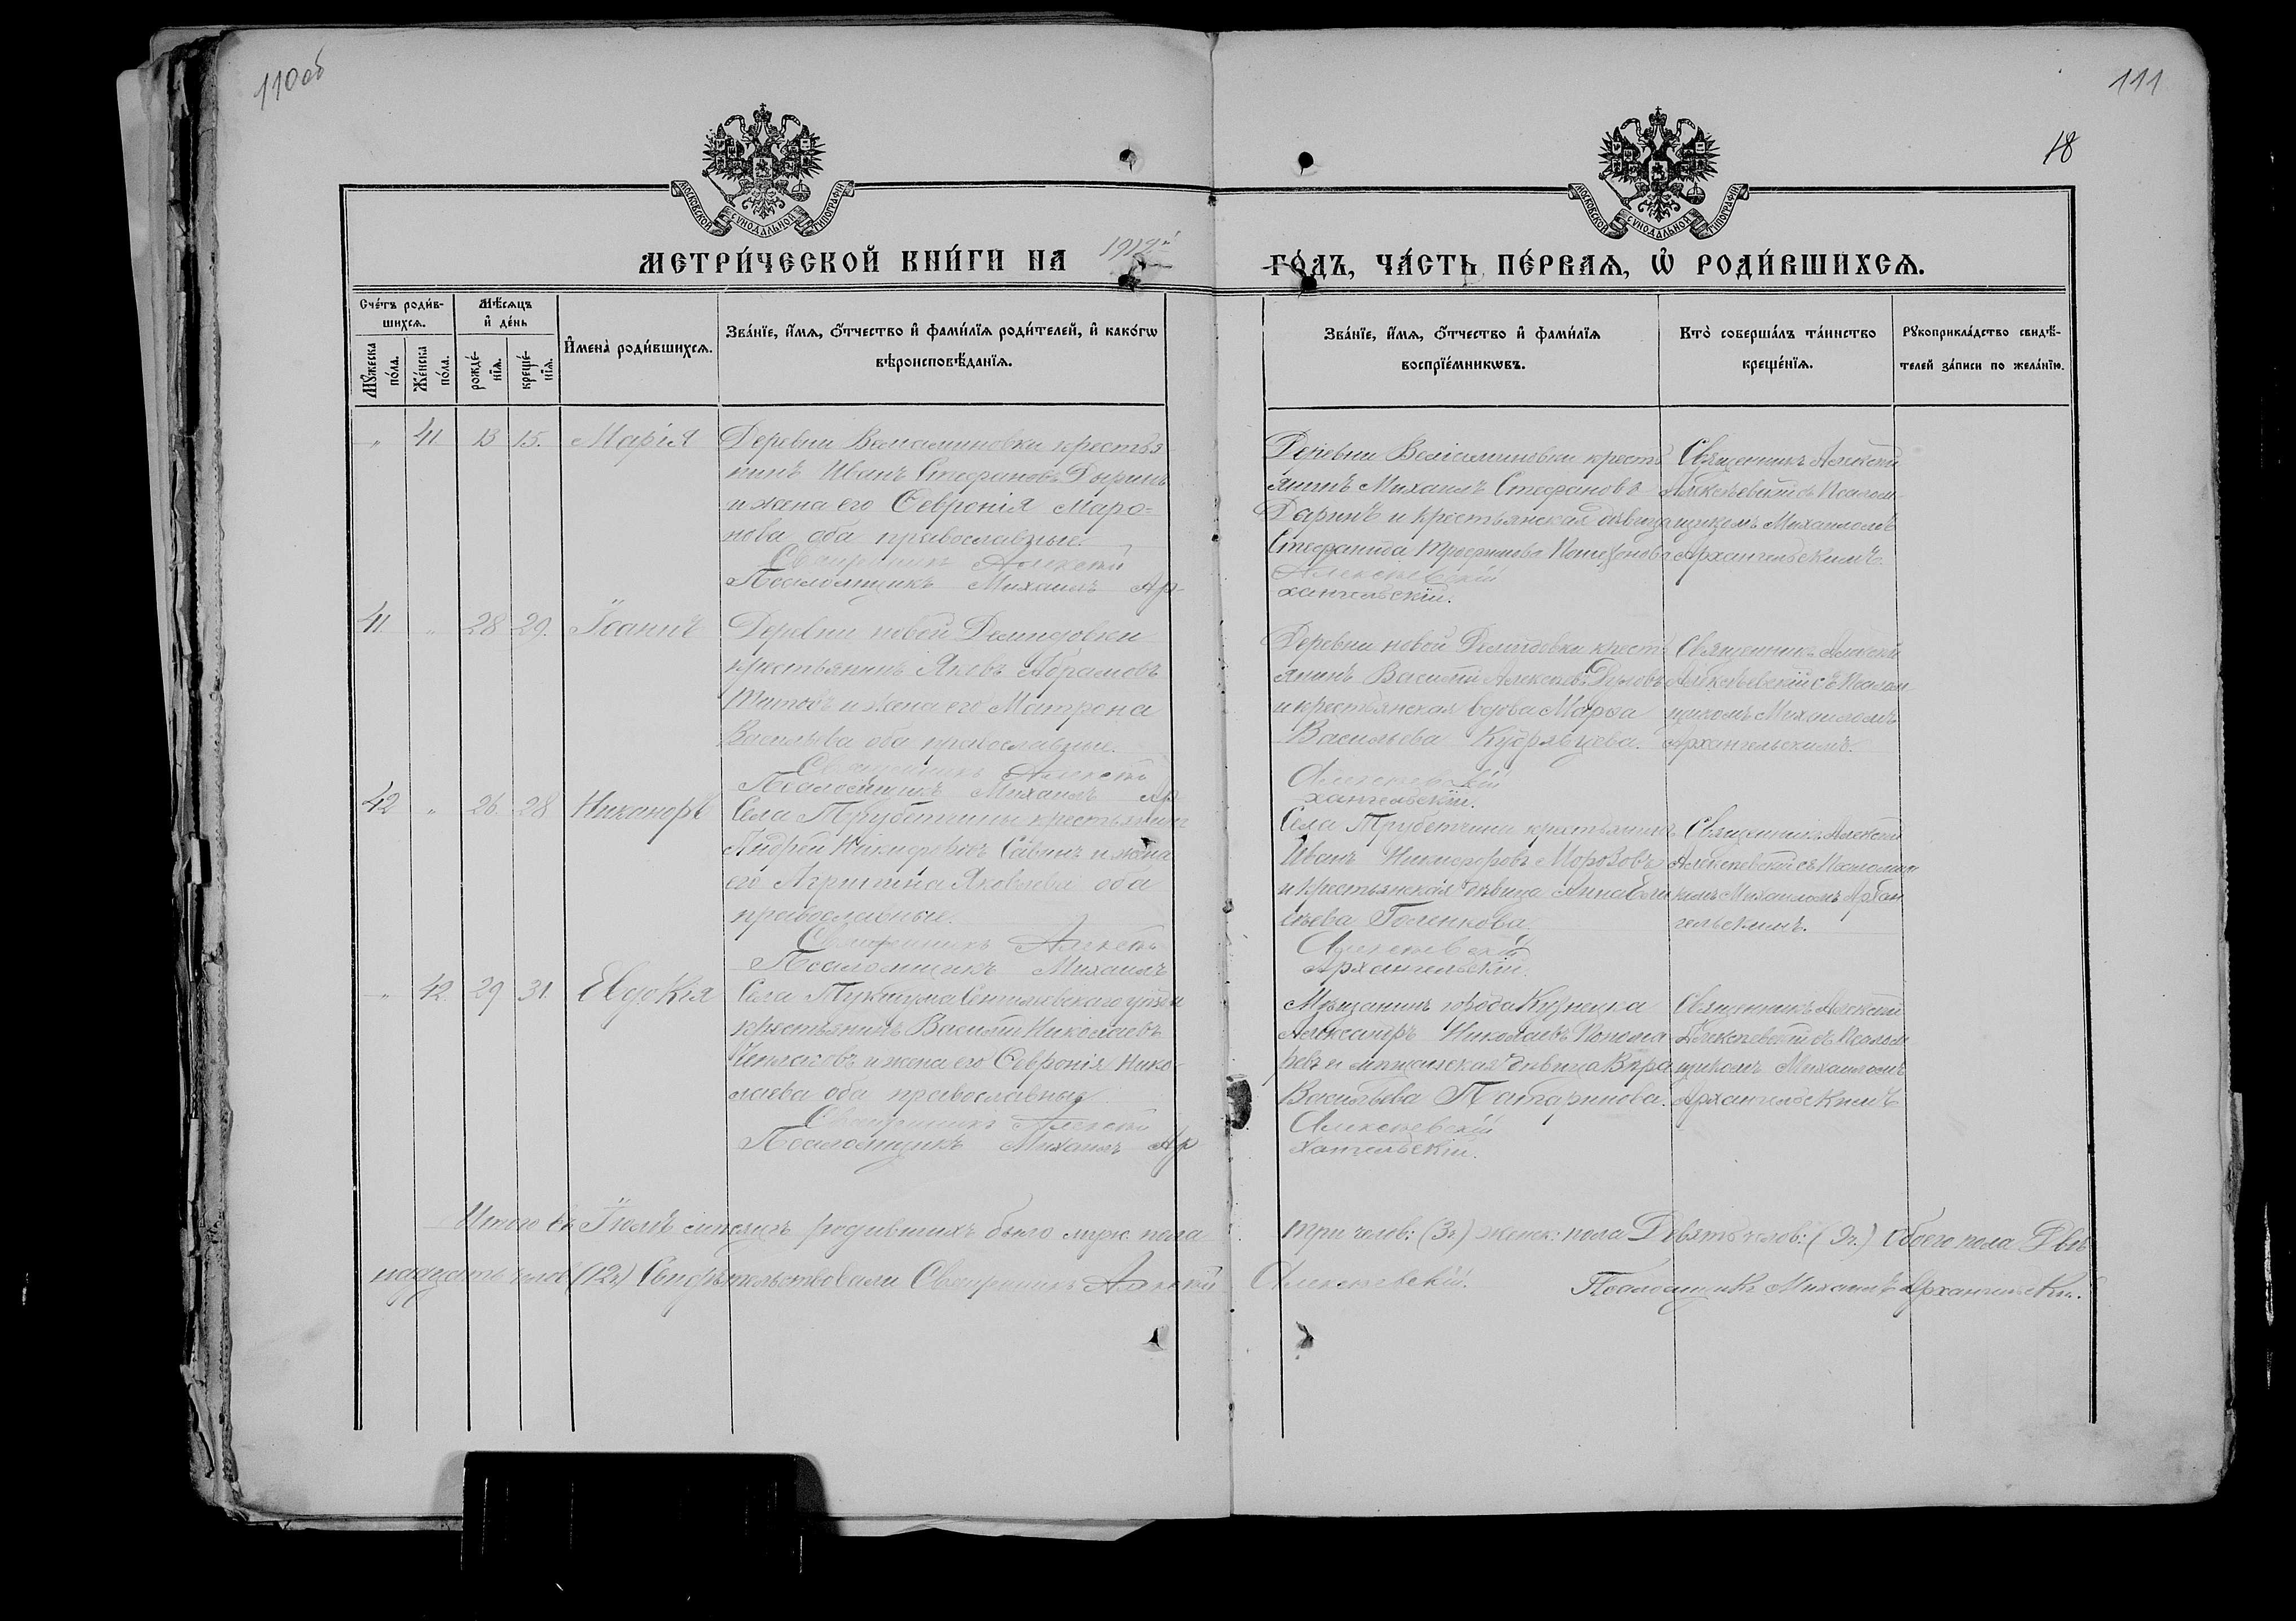 110 об
111
18
МОСКОВСКОЙ СУНОДАЛЬНОЙ ТИПОГРАФІИ
МОСКОВСКОЙ СУНОДАЛЬНОЙ ТИПОГРАФІИ
МЕТРИ́ЧЕСКОЙ КНИ́ГИ НА 1912й
ГО́ДЪ, ЧА́СТЬ ПЕ́РВАЯ, Ѡ҆ РОДИ́ВШИХСЯ.
Сче́тъ роди́в-
шихся.
Мꙋ́жеска по́ла.
Же́нска по́ла.
Мѣ́сяцъ
и҆ де́нь
рожде́-
нїя.
креще́-
нїя.
И҆мена̀ роди́вшихся.
Зва́нїе, и҆́мя, ѻ҆́тчество и҆ фами́лїя роди́телей, и҆ како́гѡ
вѣроисповѣ́данїя.
Зва́нїе, и҆́мя, ѻ҆́тчество и҆ фами́лїя
воспрїе́мникѡвъ.
Кто̀ соверша́лъ та́инство
креще́нїя.
Рꙋкоприкла́дство свидѣ́-
телей за́писи по жела́нїю.
" 41. 13 15. Марія
Деревни крестья
нинъ Иванъ Стефановъ
и жена его Февронія Маро=
нова оба православные.
Священникъ Алексѣй
Псаломщикъ Михаилъ Ар-
Деревни кресть
янинъ Михаилъ Стефановъ
и крестьянская дѣвица
Стефанида Трофимова
Алексѣевскій
хангельскій.
Священникъ Алексѣй
Алексѣевскій съ Псалом
щикомъ Михаиломъ
Архангельскимъ.
41. " 28 29. Іоаннъ
Деревни новой Демидовки
крестьянинъ Яковъ Абрамовъ
Титовъ и жена его Матрона
Васильева оба православные.
Священникъ Алексѣй
Псаломщикъ Михаилъ Ар
Деревни новой Демидовки кресть
янинъ Василій Алексѣевъ
и крестьянская вдова Марѳа
Васильева Кудрявцева.
Алексѣевскій
хангельскій.
Священникъ Алексѣй
Алексѣевскій съ Псалом
щикомъ Михаиломъ
Архангельскимъ.
42 " 26. 28 Никаноръ
Села Трубетчины крестьянинъ
Андрей Никифоровъ Савинъ и жена
его Агрипина Яковлева оба
православные.
Священникъ Алексѣй
Псаломщикъ Михаилъ
Села Трубетчины крестьянинъ
Иванъ Никифоровъ Морозовъ
и крестьянская дѣвица Анна
сѣева Голенкова.
Алексѣевскій
Архангельскій.
Священникъ Алексѣй
Алексѣевскій съ Псаломщи
комъ Михаиломъ Архан
гельскимъ.
" 42. 29 31. Евдокія
Села Сенгилеевскаго уѣзда
крестьянинъ Василій Николаевъ
и жена его Февронія Нико-
лаева оба православные.
Священникъ Алексѣй
Псаломщикъ Михаилъ Ар
Мѣщанинъ города Кузнецка
Александръ Николаевъ Понома
ревъ и мѣщанская дѣвица Вѣра
Васильева
Алексѣевскій
хангельскій.
Священникъ Алексѣй
Алексѣевскій съ Псалом
щикомъ Михаиломъ
Архангельскимъ
Итого въ Іюлѣ мѣсяцѣ родившихъ было муж. пола три челов: (3ч.) женск: пола Девять челов: (9ч.) обоего пола Двѣ
надцать челов (12ч) Свидѣтельствовали Священникъ Алексѣй Алексѣевскій. Псаломщикъ Михаилъ Архангельскій.